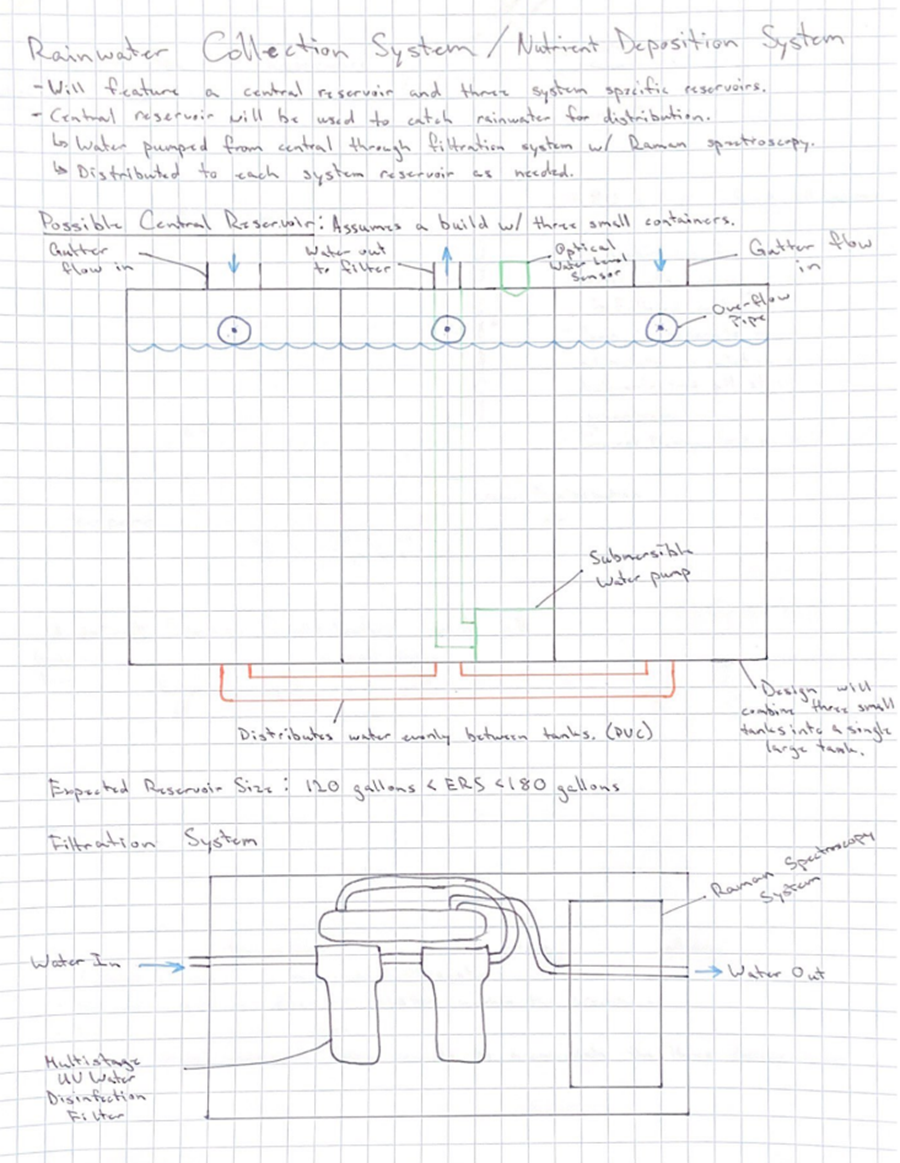 Rainwater Collection System / Nutrient Deposition System
- Will feature a central reservoir and three system specific reservoirs.
- Central reservoir will be used to catch rainwater for distribution.
↳ Water pumped from central through filtration system w/ Raman spectroscopy.
↳ Distributed to each system reservoir as needed.
Possible Central Reservoir: Assumes a build w/ three small containers.
Gutter
flow in
Water out
to filter
Optical
Water Level
Sensor
Gutter flow
in
Over-flow
Pipe
Submersible
Water pump
Distributes water evenly between tanks. (PVC)
Design will
combine three small
tanks into a single
large tank.
Expected Reservoir Size: 120 gallons < ERS < 180 gallons
Filtration System
Raman Spectroscopy
System
Water In
Water Out
Multistage
UV Water
Disinfection
Filter